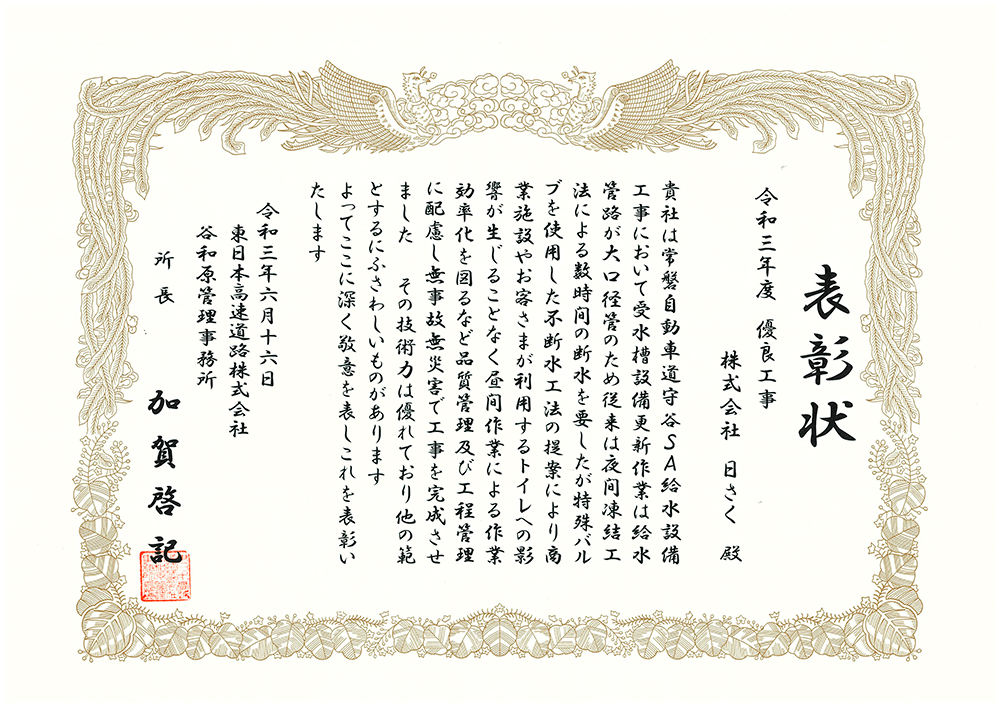 表彰状
令和三年度 優良工事
株式会社 日さく 殿
貴社は常磐自動車道守谷SA給水設備
工事において受水槽設備更新作業は給水
管路が大口径管のため従来は夜間凍結工
法による数時間の断水を要したが特殊バル
ブを使用した不断水工法の提案により商
業施設やお客さまが利用するトイレへの影
響が生じることなく昼間作業による作業
効率化を図るなど品質管理及び工程管理
に配慮し無事故無災害で工事を完成させ
ました その技術力は優れており他の範
とするにふさわしいものがあります
よってここに深く敬意を表しこれを表彰い
たします
令和三年六月十六日
東日本高速道路株式会社
谷和原管理事務所
所長 加賀啓記